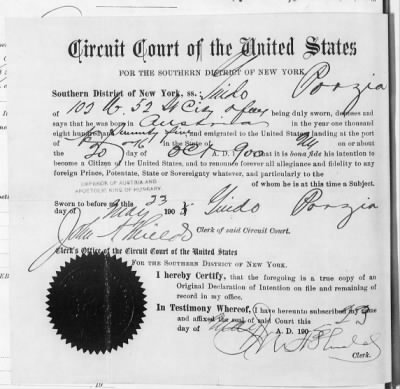 Circuit Court of the United States
FOR THE SOUTHERN DISTRICT OF NEW YORK.
Southern District of New York, ss: Guido Porzia
of 102 W 52 St City being duly sworn, deposes and
says that he was born in Austria in the year one thousand
eight hundred and and emigrated to the United States landing at the
port of in the State of NY on or about
the 20 Oct A. D. 900 that it is bona fide his intention to
become a Citizen of the United States, and to renounce forever all allegiance and fidelity to any
foreign Prince, Potentate, State or Sovereignty whatever, and particularly to the
EMPEROR OF AUSTRIA AND
APOSTOLIC KING OF HUNGARY
of whom he is at this time a Subject.
Sworn to before me this 23
day of May 190 Guido Porzia
John A Shields Clerk of said Circuit Court.
Clerk's Office of the Circuit Court of the United States
FOR THE SOUTHERN DISTRICT OF NEW YORK.
I hereby Certify, that the foregoing is a true copy of an
Original Declaration of Intention on file and remaining of
record in my office.
In Testimony Whereof, I have hereunto subscribed my name
and affixed the seal of said Court this 23
day of May A. D. 190
Clerk.